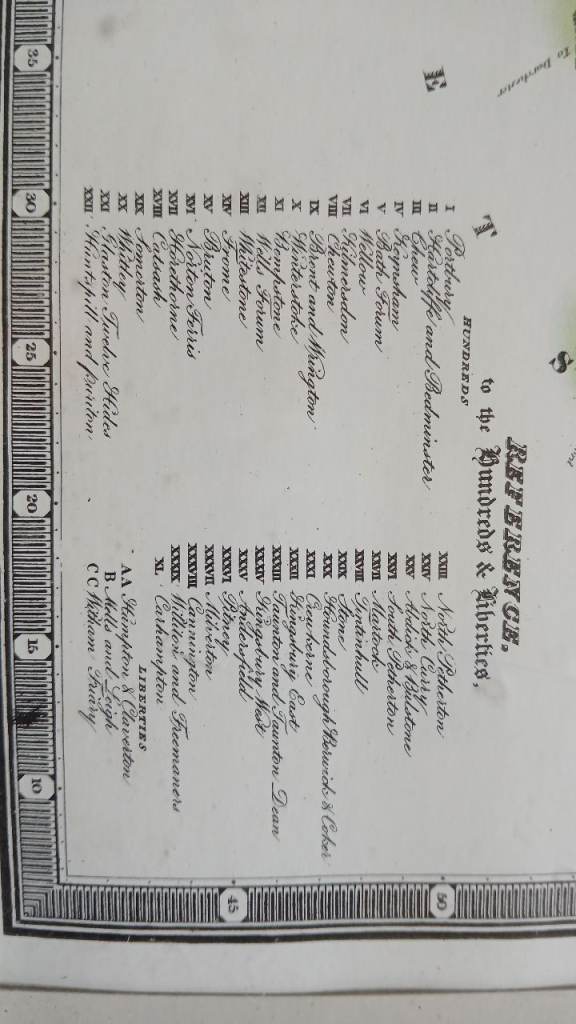 To Dorchester
E
T
S
REFERENCE.
to the Hundreds & Liberties,
HUNDREDS
I Portbury
II Hartcliffe and Bedminster
III Chew
IV Keynsham
V Bath Forum
VI Wellow
VII Kilmersdon
VIII Chewton
IX Brent and Wrington
X Winterstoke
XI Bempstone
XII Wells Forum
XIII Whitestone
XIV Frome
XV Bruton
XVI Norton Ferris
XVII Horethorne
XVIII Catsash
XIX Somerton
XX Whitley
XXI Glaston Twelve Hides
XXII Huntspill and Puriton
XXIII North Petherton
XXIV North Curry
XXV Abdick & Bulstone
XXVI South Petherton
XXVII Martock
XXVIII Tintinhull
XXIX Stone
XXX Houndsborough Berwick & Coker
XXXI Crewkerne
XXXII Kingsbury East
XXXIII Taunton and Taunton Dean
XXXIV Kingsbury West
XXXV Andersfield
XXXVI Pitney
XXXVII Milverton
XXXVIII Cannington
XXXIX Williton and Freemaners
XL Carhampton
LIBERTIES
A.A Hampton & Claverton
B Mells and Leigh
C C Witham Friary
35
30
25
20
15
10
45
50